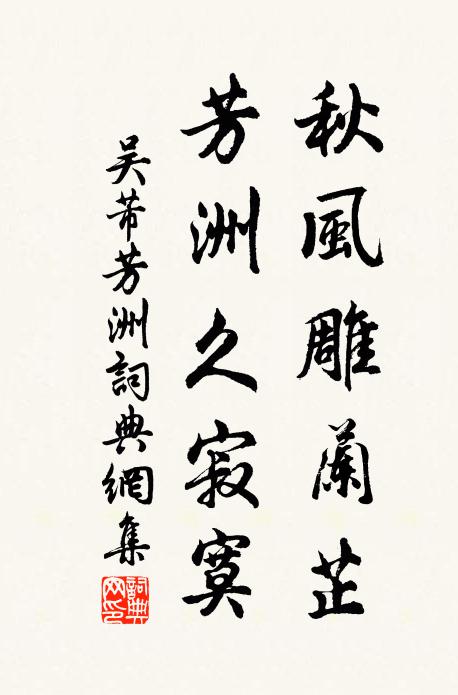 秋風雕蘭芷
芳洲久寂寞
吴芾芳洲詞典網集
詞典網印